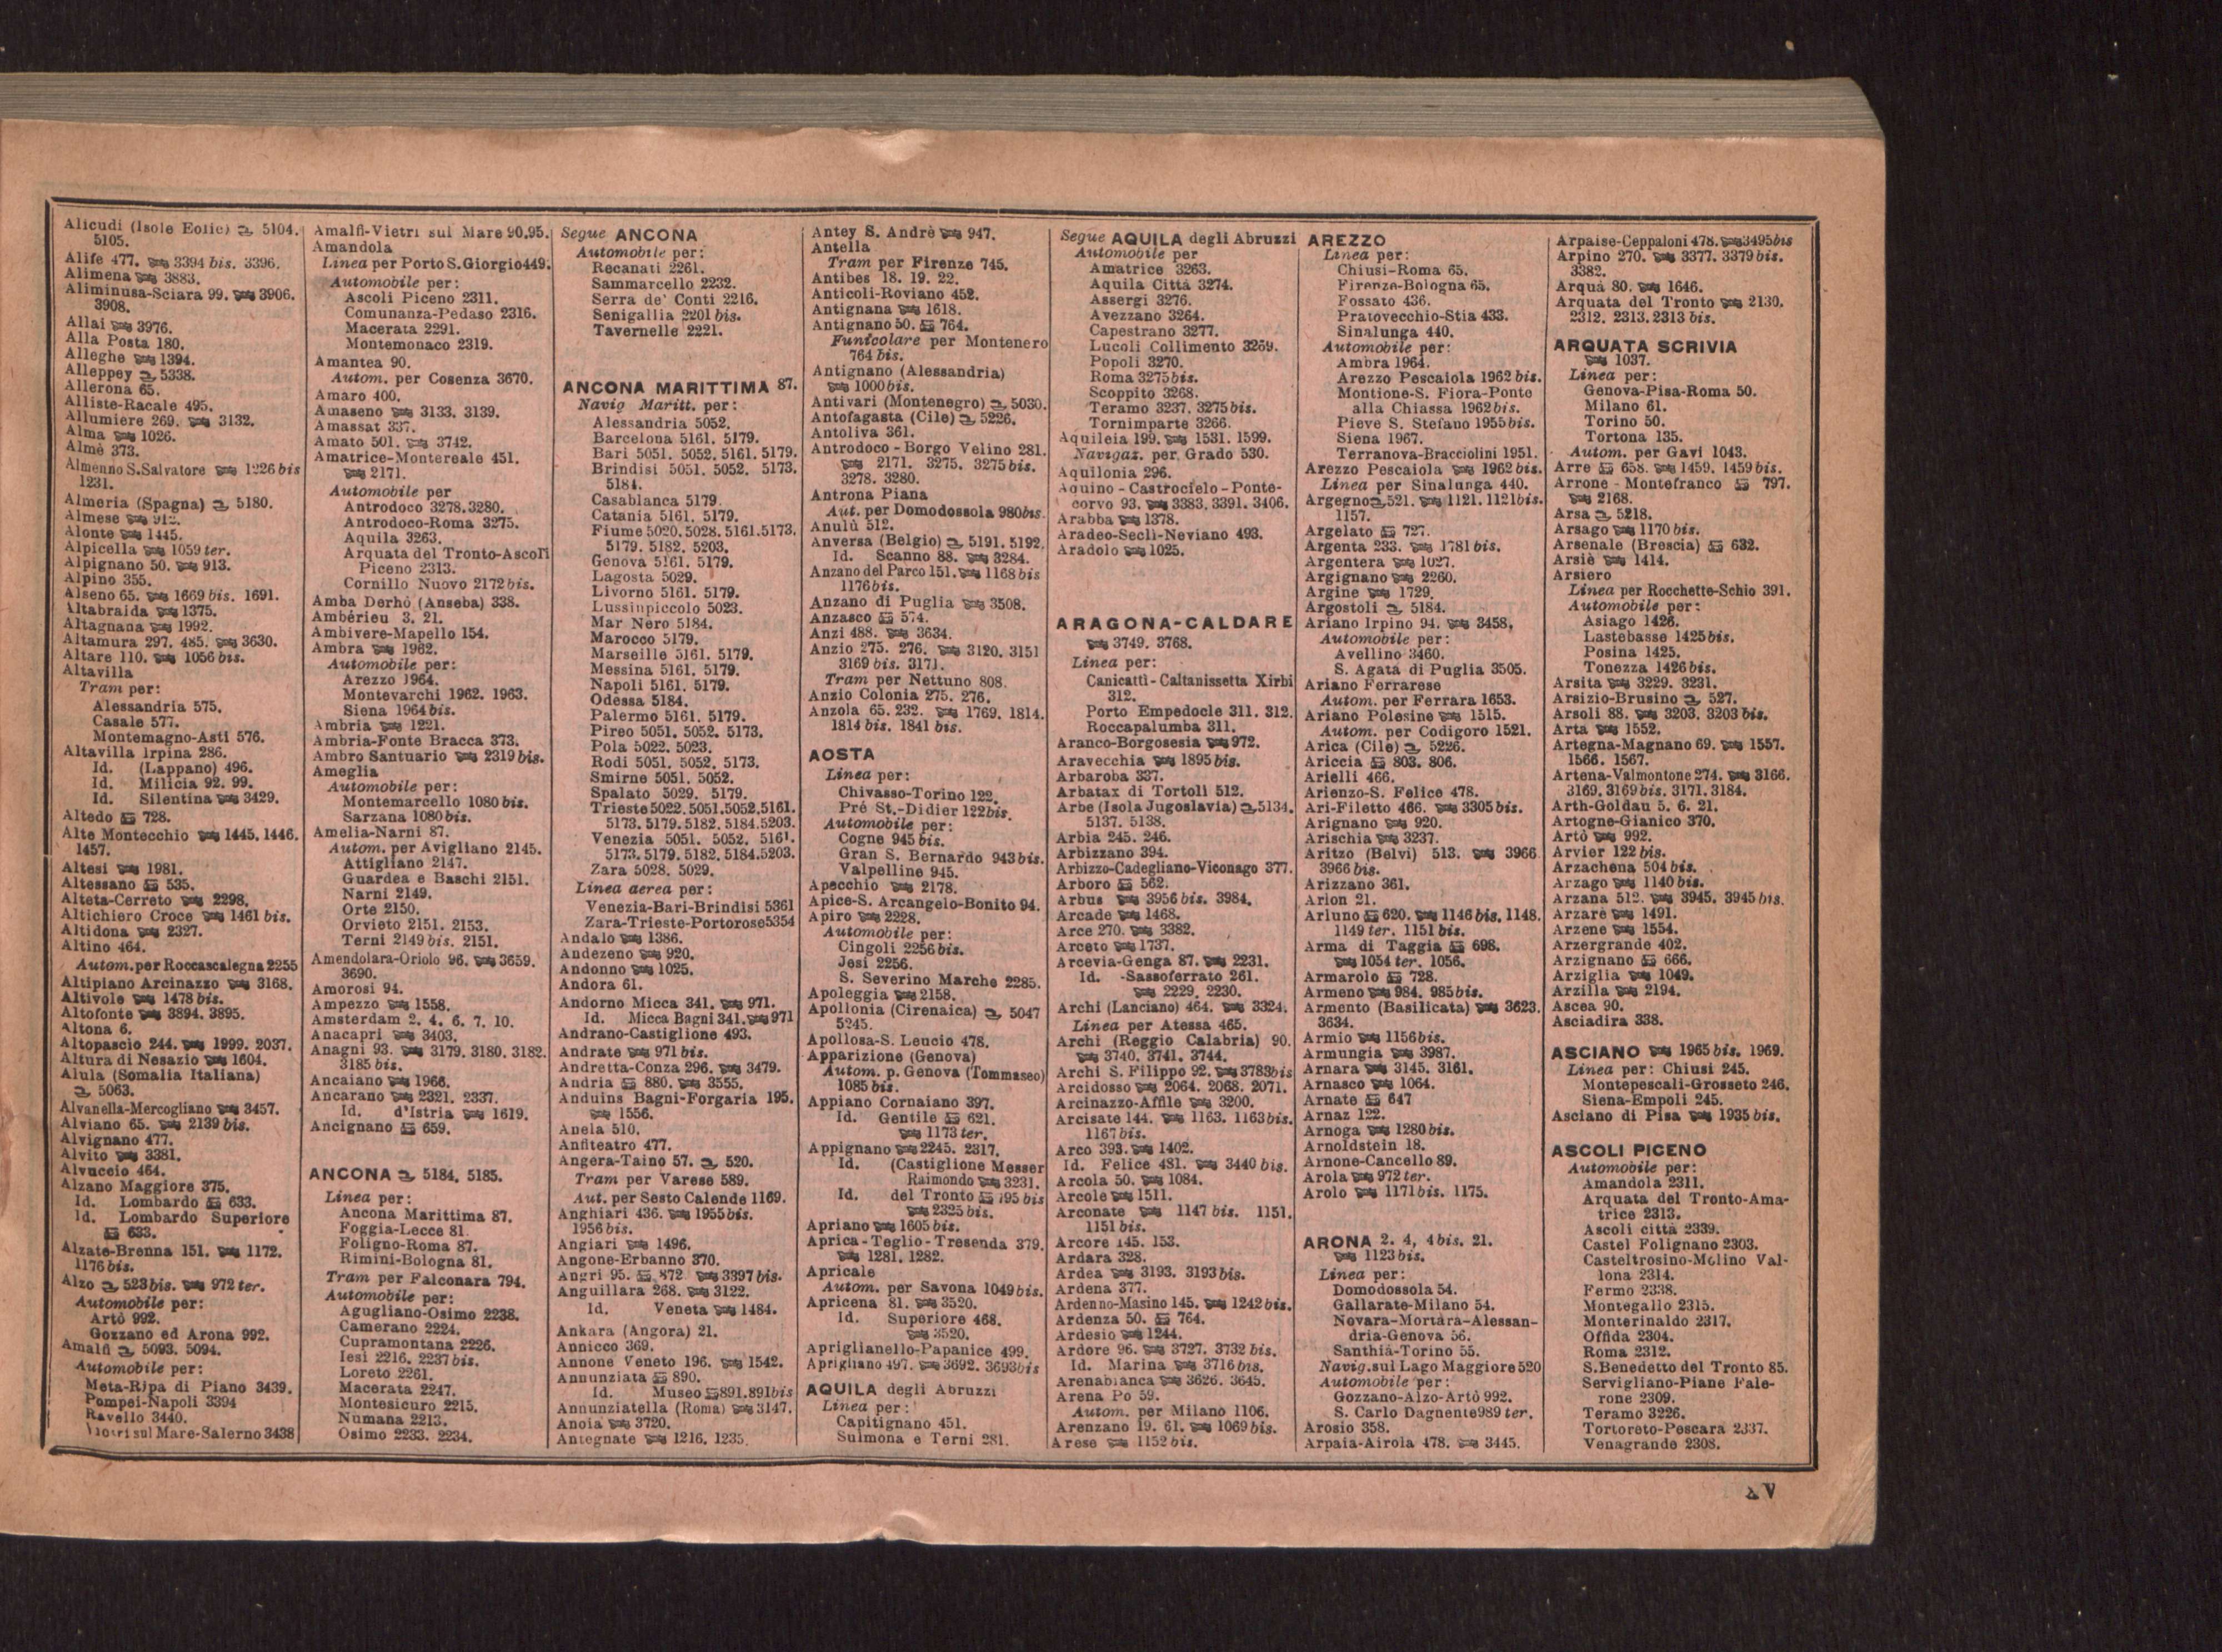 Alicudi (Isole Eolie) 5104.
5105.
Alife 477. 3394 bis. 3396.
Alimena 3883.
Aliminusa-Sciara 99. 3906.
3908.
Allai 3976.
Alla Posta 180.
Alleghe 1394.
Alleppey 5338.
Allerona 65.
Alliste-Racale 495.
Allumiere 269. 3132.
Alma 1026.
Almè 373.
Almenno S.Salvatore 1226 bis
1231.
Almeria (Spagna) 5180.
Almese 912.
Alonte 1445.
Alpicella 1059 ter.
Alpignano 50. 913.
Alpino 355.
Alseno 65. 1669 bis. 1691.
Altabraida 1375.
Altagnana 1992.
Altamura 297. 485. 3630.
Altare 110. 1056 bis.
Altavilla
Tram per:
Alessandria 575.
Casale 577.
Montemagno-Asti 576.
Altavilla Irpina 286.
Id. (Lappano) 496.
Id. Milicia 92. 99.
Id. Silentina 3429.
Altedo 728.
Alte Montecchio 1445. 1446.
1457.
Altesi 1981.
Altessano 535.
Alteta-Cerreto 2298.
Altichiero Croce 1461 bis.
Altidona 2327.
Altino 464.
Autom. per Roccascalegna 2255
Altipiano Arcinazzo 3168.
Altivole 1478 bis.
Altofonte 3894. 3895.
Altona 6.
Altopascio 244. 1999. 2037.
Altura di Nesazio 1604.
Alula (Somalia Italiana)
5063.
Alvanella-Mercogliano 3457.
Alviano 65. 2139 bis.
Alvignano 477.
Alvito 3381.
Alvuccio 464.
Alzano Maggiore 375.
Id. Lombardo 633.
Id. Lombardo Superiore
633.
Alzate-Brenna 151. 1172.
1176 bis.
Alzo 523 bis. 972 ter.
Automobile per:
Artò 992.
Gozzano ed Arona 992.
Amalfi 5093. 5094.
Automobile per:
Meta-Ripa di Piano 3439.
Pompei-Napoli 3394
Ravello 3440.
Vietri sul Mare-Salerno 3438
Amalfi-Vietri sul Mare 90.95.
Amandola
Linea per Porto S.Giorgio 449.
Automobile per:
Ascoli Piceno 2311.
Comunanza-Pedaso 2316.
Macerata 2291.
Montemonaco 2319.
Amantea 90.
Autom. per Cosenza 3670.
Amaro 400.
Amaseno 3133. 3139.
Amassat 337.
Amato 501. 3742.
Amatrice-Montereale 451.
2171.
Automobile per
Antrodoco 3278.3280.
Antrodoco-Roma 3275.
Aquila 3263.
Arquata del Tronto-Ascoli
Piceno 2313.
Cornillo Nuovo 2172 bis.
Amba Derhò (Anseba) 338.
Ambérieu 3. 21.
Ambivere-Mapello 154.
Ambra 1962.
Automobile per:
Arezzo 1964.
Montevarchi 1962. 1963.
Siena 1964 bis.
Ambria 1221.
Ambria-Fonte Bracca 373.
Ambro Santuario 2319 bis.
Ameglia
Automobile per:
Montemarcello 1080 bis.
Sarzana 1080 bis.
Amelia-Narni 87.
Autom. per Avigliano 2145.
Attigliano 2147.
Guardea e Baschi 2151.
Narni 2149.
Orte 2150.
Orvieto 2151. 2153.
Terni 2149 bis. 2151.
Amendolara-Oriolo 96. 3659.
3690.
Amorosi 94.
Ampezzo 1558.
Amsterdam 2. 4. 6. 7. 10.
Anacapri 3403.
Anagni 93. 3179. 3180. 3182.
3185 bis.
Ancaiano 1966.
Ancarano 2321. 2337.
Id. d'Istria 1619.
Ancignano 659.
ANCONA 5184. 5185.
Linea per:
Ancona Marittima 87.
Foggia-Lecce 81.
Foligno-Roma 87.
Rimini-Bologna 81.
Tram per Falconara 794.
Automobile per:
Agugliano-Osimo 2238.
Camerano 2224.
Cupramontana 2226.
Iesi 2216. 2237 bis.
Loreto 2261.
Macerata 2247.
Montesicuro 2215.
Numana 2213.
Osimo 2233. 2234.
Segue ANCONA
Automobile per:
Recanati 2261.
Sammarcello 2232.
Serra de' Conti 2216.
Senigallia 2201 bis.
Tavernelle 2221.
ANCONA MARITTIMA 87.
Navig Maritt. per:
Alessandria 5052.
Barcelona 5161. 5179.
Bari 5051. 5052. 5161. 5179.
Brindisi 5051. 5052. 5173.
5184.
Casablanca 5179.
Catania 5161. 5179.
Fiume 5020.5028.5161.5173.
5179. 5182. 5203.
Genova 5161. 5179.
Lagosta 5029.
Livorno 5161. 5179.
Lussinpiccolo 5023.
Mar Nero 5184.
Marocco 5179.
Marseille 5161. 5179.
Messina 5161. 5179.
Napoli 5161. 5179.
Odessa 5184.
Palermo 5161. 5179.
Pireo 5051. 5052. 5173.
Pola 5022. 5023.
Rodi 5051. 5052. 5173.
Smirne 5051. 5052.
Spalato 5029. 5179.
Trieste 5022.5051.5052.5161.
5173.5179.5182.5184.5203.
Venezia 5051. 5052. 5161.
5173.5179.5182.5184.5203.
Zara 5028. 5029.
Linea aerea per:
Venezia-Bari-Brindisi 5361
Zara-Trieste-Portorose 5354
Andalo 1386.
Andezeno 920.
Andonno 1025.
Andora 61.
Andorno Micca 341. 971.
Id. Micca Bagni 341. 971
Andrano-Castiglione 493.
Andrate 971 bis.
Andretta-Conza 296. 3479.
Andria 880. 3555.
Anduins Bagni-Forgaria 195.
1556.
Anela 510.
Anfiteatro 477.
Angera-Taino 57. 520.
Tram per Varese 589.
Aut. per Sesto Calende 1169.
Anghiari 436. 1955 bis.
1956 bis.
Angiari 1496.
Angone-Erbanno 370.
Angri 95. 872 3397 bis.
Anguillara 268. 3122.
Id. Veneta 1484.
Ankara (Angora) 21.
Annicco 369.
Annone Veneto 196. 1542.
Annunziata 890.
Id. Museo 891.891bis
Annunziatella (Roma) 3147.
Anoia 3720.
Antegnate 1216. 1235.
Antey S. Andrè 947.
Antella
Tram per Firenze 745.
Antibes 18. 19. 22.
Anticoli-Roviano 452.
Antignana 1618.
Antignano 50. 764.
Funicolare per Montenero
764 bis.
Antignano (Alessandria)
1000 bis.
Antivari (Montenegro) 5030.
Antofagasta (Cile) 5226.
Antoliva 361.
Antrodoco - Borgo Velino 281.
2171. 3275. 3275 bis.
3278. 3280.
Antrona Piana
Aut. per Domodossola 980bis.
Anulù 512.
Anversa (Belgio) 5191. 5192.
Id. Scanno 88. 3284.
Anzano del Parco 151. 1168 bis
1176 bis.
Anzano di Puglia 3508.
Anzasco 574.
Anzi 488. 3634.
Anzio 275. 276. 3120. 3151
3169 bis. 3171.
Tram per Nettuno 808.
Anzio Colonia 275. 276.
Anzola 65. 232. 1769. 1814.
1814 bis. 1841 bis.
AOSTA
Linea per:
Chivasso-Torino 122.
Pré St.-Didier 122 bis.
Automobile per:
Cogne 945 bis.
Gran S. Bernardo 943 bis.
Valpelline 945.
Apecchio 2178.
Apice-S. Arcangelo-Bonito 94.
Apiro 2228.
Automobile per:
Cingoli 2256 bis.
Jesi 2256.
S. Severino Marche 2285.
Apoleggia 2158.
Apollonia (Cirenaica) 5047
5245.
Apollosa-S. Leucio 478.
Apparizione (Genova)
Autom. p. Genova (Tommaseo)
1085 bis.
Appiano Cornaiano 397.
Id. Gentile 621.
1173 ter.
Appignano 2245. 2317.
Id. (Castiglione Messer
Raimondo 3231.
Id. del Tronto 795 bis
2325 bis.
Apriano 1605 bis.
Aprica - Teglio - Tresenda 379.
1281. 1282.
Apricale
Autom. per Savona 1049 bis.
Apricena 81. 3520.
Id. Superiore 468.
3520.
Apriglianello-Papanice 499.
Aprigliano 497. 3692. 3693bis
AQUILA degli Abruzzi
Linea per:
Capitignano 451.
Sulmona e Terni 281.
Segue AQUILA degli Abruzzi
Automobile per
Amatrice 3263.
Aquila Città 3274.
Assergi 3276.
Avezzano 3264.
Capestrano 3277.
Lucoli Collimento 3269.
Popoli 3270.
Roma 3275 bis.
Scoppito 3268.
Teramo 3237. 3275 bis.
Tornimparte 3266.
Aquileia 199. 1531. 1599.
Navigaz. per Grado 530.
Aquilonia 296.
Aquino - Castrocielo - Ponte-
corvo 93. 3383. 3391. 3406.
Arabba 1378.
Aradeo-Seclì-Neviano 493.
Aradolo 1025.
ARAGONA-CALDARE
3749. 3768.
Linea per:
Canicattì-Caltanissetta Xirbi
312.
Porto Empedocle 311. 312.
Roccapalumba 311.
Aranco-Borgosesia 972.
Aravecchia 1895 bis.
Arbaroba 337.
Arbatax di Tortoli 512.
Arbe (Isola Jugoslavia) 5134.
5137. 5138.
Arbia 245. 246.
Arbizzano 394.
Arbizzo-Cadegliano-Viconago 377.
Arboro 562.
Arbus 3956 bis. 3984.
Arcade 1468.
Arce 270. 3382.
Arceto 1737.
Arcevia-Genga 87. 2231.
Id. -Sassoferrato 261.
2229. 2230.
Archi (Lanciano) 464. 3324.
Linea per Atessa 465.
Archi (Reggio Calabria) 90.
3740. 3741. 3744.
Archi S. Filippo 92. 3783bis
Arcidosso 2064. 2068. 2071.
Arcinazzo-Affile 3200.
Arcisate 144. 1163. 1163 bis.
1167 bis.
Arco 393. 1402.
Id. Felice 481. 3440 bis.
Arcola 50. 1084.
Arcole 1511.
Arconate 1147 bis. 1151.
1151 bis.
Arcore 145. 153.
Ardara 328.
Ardea 3193. 3193 bis.
Ardena 377.
Ardenno-Masino 145. 1242 bis.
Ardenza 50. 764.
Ardesio 1244.
Ardore 96. 3727. 3732 bis.
Id. Marina 3716 bis.
Arenabianca 3626. 3645.
Arena Po 59.
Autom. per Milano 1106.
Arenzano 19. 61. 1069 bis.
Arese 1152 bis.
AREZZO
Linea per:
Chiusi-Roma 65.
Firenze-Bologna 65.
Fossato 436.
Pratovecchio-Stia 433.
Sinalunga 440.
Automobile per:
Ambra 1964.
Arezzo Pescaiola 1962 bis.
Montione-S. Fiora-Ponte
alla Chiassa 1962 bis.
Pieve S. Stefano 1955 bis.
Siena 1967.
Terranova-Bracciolini 1951.
Arezzo Pescaiola 1962 bis.
Linea per Sinalunga 440.
Argegno 521. 1121. 1121bis.
1157.
Argelato 727.
Argenta 233. 1781 bis.
Argentera 1027.
Argignano 2260.
Argine 1729.
Argostoli 5184.
Ariano Irpino 94. 3458.
Automobile per:
Avellino 3460.
S. Agata di Puglia 3505.
Ariano Ferrarese
Autom. per Ferrara 1653.
Ariano Polesine 1515.
Autom. per Codigoro 1521.
Arica (Cile) 5226.
Ariccia 803. 806.
Arielli 466.
Arienzo-S. Felice 478.
Ari-Filetto 466. 3305 bis.
Arignano 920.
Arischia 3237.
Aritzo (Belvì) 513. 3966
3966 bis.
Arizzano 361.
Arlon 21.
Arluno 620. 1146 bis. 1148.
1149 ter. 1151 bis.
Arma di Taggia 698.
1054 ter. 1056.
Armarolo 728.
Armeno 984. 985 bis.
Armento (Basilicata) 3623.
3634.
Armio 1156 bis.
Armungia 3987.
Arnara 3145. 3161.
Arnasco 1064.
Arnate 647
Arnaz 122.
Arnoga 1280 bis.
Arnoldstein 18.
Arnone-Cancello 89.
Arola 972 ter.
Arolo 1171 bis. 1175.
ARONA 2. 4, 4 bis. 21.
1123 bis.
Linea per:
Domodossola 54.
Gallarate-Milano 54.
Novara-Mortara-Alessan-
dria-Genova 56.
Santhià-Torino 55.
Navig.sul Lago Maggiore 520
Automobile per:
Gozzano-Alzo-Artò 992.
S. Carlo Dagnente 989 ter.
Arosio 358.
Arpaia-Airola 478. 3445.
Arpaise-Ceppaloni 478. 3495bis
Arpino 270. 3377. 3379 bis.
3382.
Arquà 80. 1646.
Arquata del Tronto 2130.
2312. 2313. 2313 bis.
ARQUATA SCRIVIA
1037.
Linea per:
Genova-Pisa-Roma 50.
Milano 61.
Torino 50.
Tortona 135.
Autom. per Gavi 1043.
Arre 658. 1459. 1459 bis.
Arrone - Montefranco 797.
2168.
Arsa 5218.
Arsago 1170 bis.
Arsenale (Brescia) 632.
Arsiè 1414.
Arsiero
Linea per Rocchette-Schio 391.
Automobile per:
Asiago 1426.
Lastebasse 1425 bis.
Posina 1425.
Tonezza 1426 bis.
Arsita 3229. 3231.
Arsizio-Brusino 527.
Arsoli 88. 3203. 3203 bis.
Arta 1552.
Artegna-Magnano 69. 1557.
1566. 1567.
Artena-Valmontone 274. 3166.
3169. 3169 bis. 3171. 3184.
Arth-Goldau 5. 6. 21.
Artogne-Gianico 370.
Artò 992.
Arvier 122 bis.
Arzachena 504 bis.
Arzago 1140 bis.
Arzana 512. 3945. 3945 bis.
Arzarè 1491.
Arzene 1554.
Arzergrande 402.
Arzignano 666.
Arziglia 1049.
Arzilla 2194.
Ascea 90.
Asciadira 338.
ASCIANO 1965 bis. 1969.
Linea per: Chiusi 245.
Montepescali-Grosseto 246.
Siena-Empoli 245.
Asciano di Pisa 1935 bis.
ASCOLI PICENO
Automobile per:
Amandola 2311.
Arquata del Tronto-Ama-
trice 2313.
Ascoli città 2339.
Castel Folignano 2303.
Casteltrosino-Molino Val-
lona 2314.
Fermo 2338.
Montegallo 2315.
Monterinaldo 2317.
Offida 2304.
Roma 2312.
S.Benedetto del Tronto 85.
Servigliano-Piane Fale-
rone 2309.
Teramo 3226.
Tortoreto-Pescara 2337.
Venagrande 2308.
XV